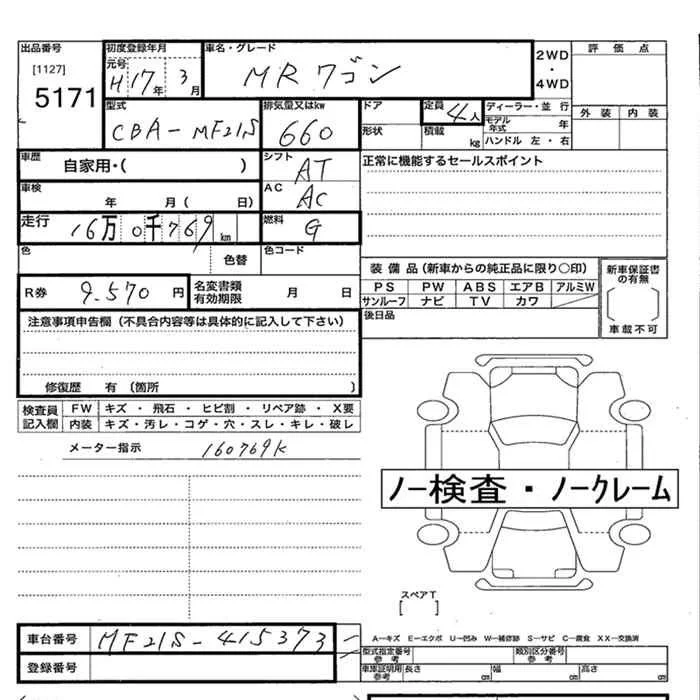 出品番号 初度登録年月 車名・グレード
[1127] 元号 H17年 3月 MRワゴン 2WD・4WD 評価点
5171
型式 排気量又はkw ドア 定員 4人 ディーラー・並行 外装 内装
CBA-MF21S 660 形状 積載 kg モデル年式 年
ハンドル 左・右
車歴 自家用・( ) シフト AT 正常に機能するセールスポイント
車検 年 月( 日) AC AC
走行 16万0千769 km 燃料 G
色 色替 色コード
装備品(新車からの純正品に限り○印) 新車保証書の有無
R券 9.570円 名変書類有効期限 月 日 PS PW ABS エアB アルミW
サンルーフ ナビ TV カワ 車載不可
注意事項申告欄(不具合内容等は具体的に記入して下さい) 後日品
修復歴 有(箇所 )
検査員記入欄 FW キズ・飛石・ヒビ割・リペア跡・X要
内装 キズ・汚レ・コゲ・穴・スレ・キレ・破レ
メーター指示 160769K
ノー検査・ノークレーム
スペアT
[ ]
車台番号 MF21S-415373
A—キズ E—エクボ U—凹み W—補修跡 S—サビ C—腐食 XX—交換済
登録番号 型式指定番号 参考 類別区分番号 参考
車庫証明用参考 長さ cm 幅 cm 高さ cm